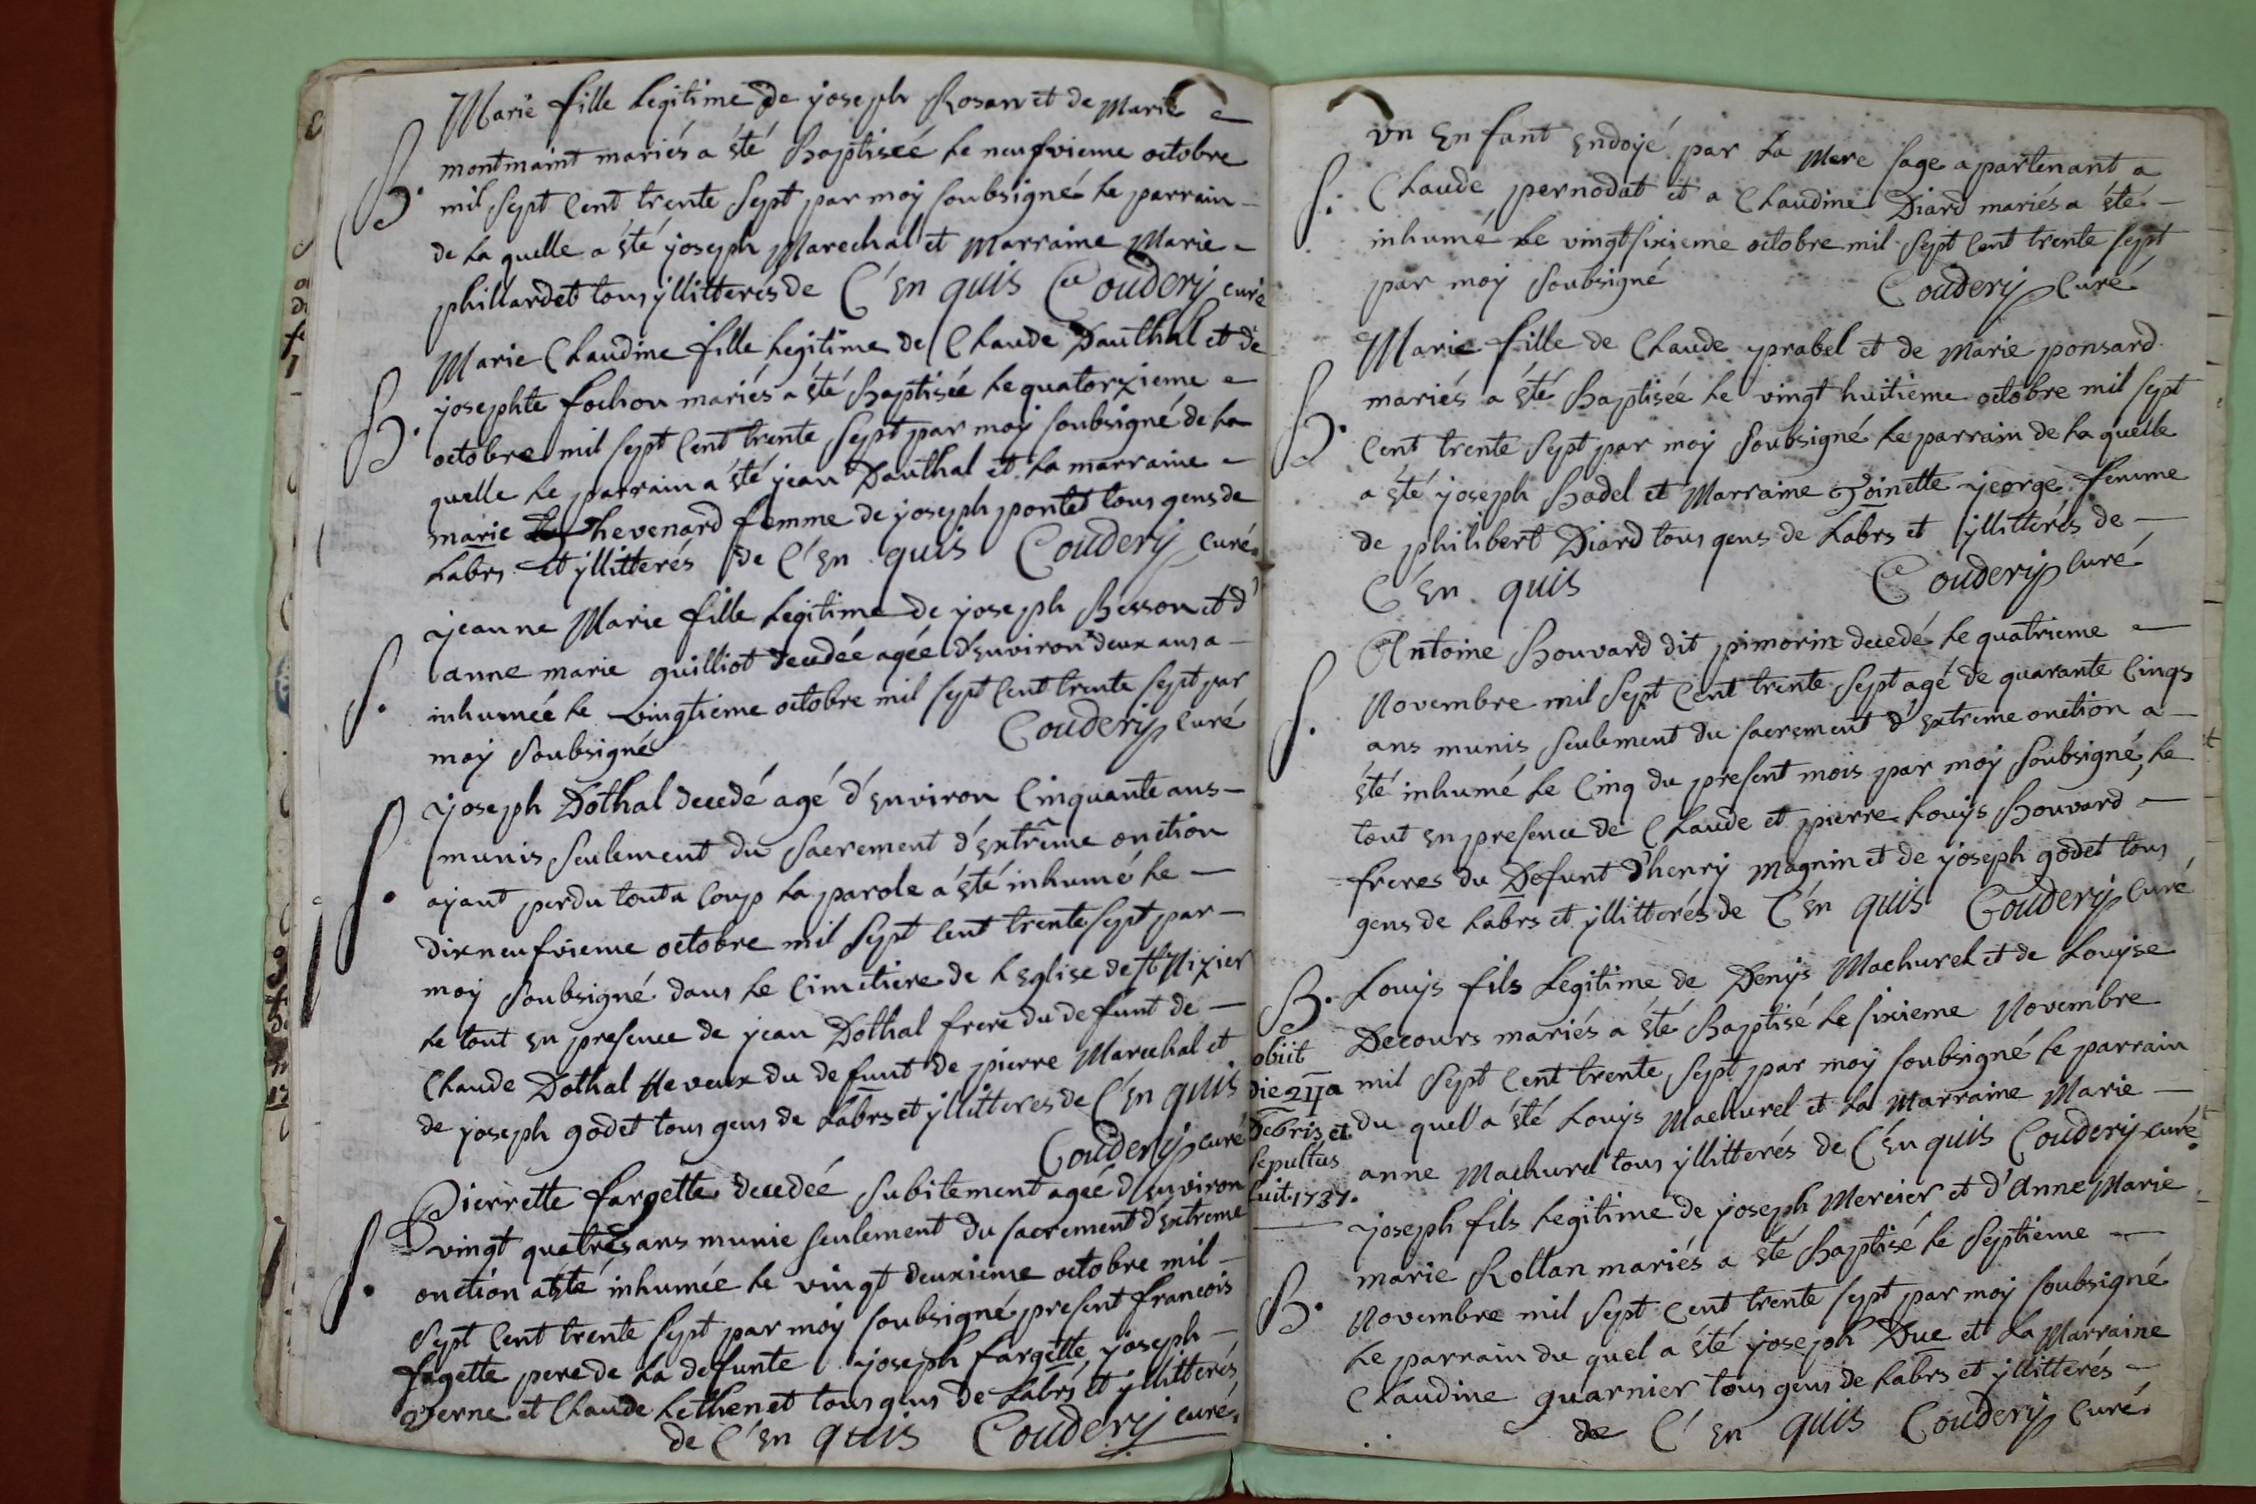 Marie fille Legitime de joseph Rosan et de Marie
montmaint mariés a été Baptiseé le neufvieme octobre
B. mil sept Cent trente sept par moÿ soubsigné le parrain
de la quelle a été joseph Marechal et Marraine Marie
phillardet tous ÿllitterés de C'en quis Couderÿ curé
Marie Claudine fille Legitime de Claude Dauthal et de
josephte fochon mariés a été Baptisée le quatorzieme
B. octobre mil sept Cent trente sept par moÿ soubsigné de la
quelle le parrain a été jean Dauthal et la marraine
marie Thevenard femme de joseph pontet tous gens de
Labrs et ÿllitterés de C'en quis Couderÿ Curé.
jeanne Marie fille Legitime de joseph Besson et d'
anne marie guilliot decedée agée d'environ deux ans a
S. inhumée le vingtieme octobre mil sept Cent trente sept par
moÿ soubsigné Couderÿ Curé
joseph Dothal decedé agé d'environ Cinquante ans
munis seulement du sacrement d'extrême onction
S. ayant perdu tout a Coup la parole a été inhumé le
dix neufvieme octobre mil sept Cent trente sept par
moÿ soubsigné dans le Cimetiere de l'Eglise de St Nixier
le tout en presence de jean Dothal frere du defunt de
Claude Dothal Neveux du defunt de pierre Marechal et
de joseph godet tous gens de Labrs et ÿllitteres de C'en quis
Couderÿ curé
Pierrette fargette decedée subitement agée d'environ
vingt quatres ans munie seulement du sacrement d'extreme
S. onction a été inhumée le vingt deuxieme octobre mil
sept Cent trente sept par moÿ soubsigné present francois
fagette pere de la defunte joseph fargette joseph
verne et Claude Lethenet tous gens de Labrs et ÿllitterés
de C'en quis Couderÿ curé.
un enfant endoÿé par la Mere sage apartenant a
S. Claude pernodat et a Claudine Diard mariés a été
inhumé le vingt sixieme octobre mil sept Cent trente sept
par moÿ soubsigné Couderÿ Curé
Marie fille de Claude prabel et de Marie ponsard
mariés a été Baptisée le vingt huitieme octobre mil sept
B. Cent trente sept par moÿ soubsigné le parrain de la quelle
a été joseph Badel et Marraine Toinette jeorge femme
de philibert Diard tous gens de Labrs et ÿllitterés de
C'en quis Couderÿ curé
Antoine Bouvard dit pimorin decedé le quatrieme
S. Novembre mil sept Cent trente sept agé de quarante Cinqs
ans munis seulement du sacrement d'extreme onction a
été inhumé le Cinq du present mois par moÿ soubsigné, le
tout en presence de Claude et pierre Louÿs Bouvard
freres du Defunt d'henrÿ Magnin et de joseph godet tous
gens de Labrs et ÿllitterés de C'en quis Couderÿ curé
B. Louÿs fils Legitime de Denÿs Machurel et de Louÿse
Decours mariés a été Baptisé le sixieme Novembre
mil sept Cent trente sept par moÿ soubsigné le parrain
du quel a été Louÿs Machurel et la Marraine Marie
anne Machurel tous ÿllitterés de C'en quis Couderÿ curé
obiit
die 27a
Xebris et
sepultus
fuit. 1737.
joseph fils Legitime de joseph Mercier et d'Anne Marie
marie Rollan mariés a été Baptisé le septieme
B. Novembre mil sept Cent trente sept par moÿ soubsigné
le parrain du quel a été joseph Duc et la Marraine
Claudine guarnier tous gens de Labrs et ÿllitterés
de C'en quis Couderÿ Curé.